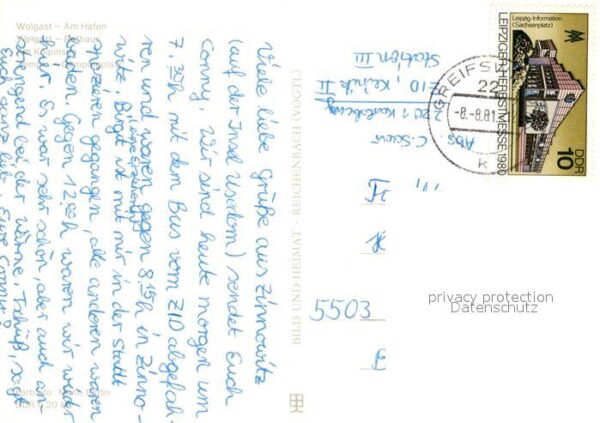 Wolgast – Am Hafen
Wolgast – Rathaus
Viele liebe Grüße aus Zinnowitz
(auf der Insel Usedom) sendet Euch
Conny. Wir sind heute morgen um
7.20h mit dem Bus vom ZIO abgefah-
ren und waren gegen 8.15h in Zinno-
witz. Birgit ist mit mir in der Stadt
(eine Erzieherin)
spazieren gegangen, alle anderen waren
baden. Gegen 12.00h waren wir wieder
hier. Es war sehr schön, aber auch an-
strengend bei der Wärme. Tschüß, sagt
Euch ganz lieb, Eure Conny
BILD UND HEIMAT · REICHENBACH (VOGTL)
Abs. C.
ZIO, Klinik II
Station III
5503
GREIFSW
22
-8.-8.81
K
Leipzig-Information
(Sachsenplatz)
LEIPZIGER HERBSTMESSE 1980
DDR
10
privacy protection
Datenschutz